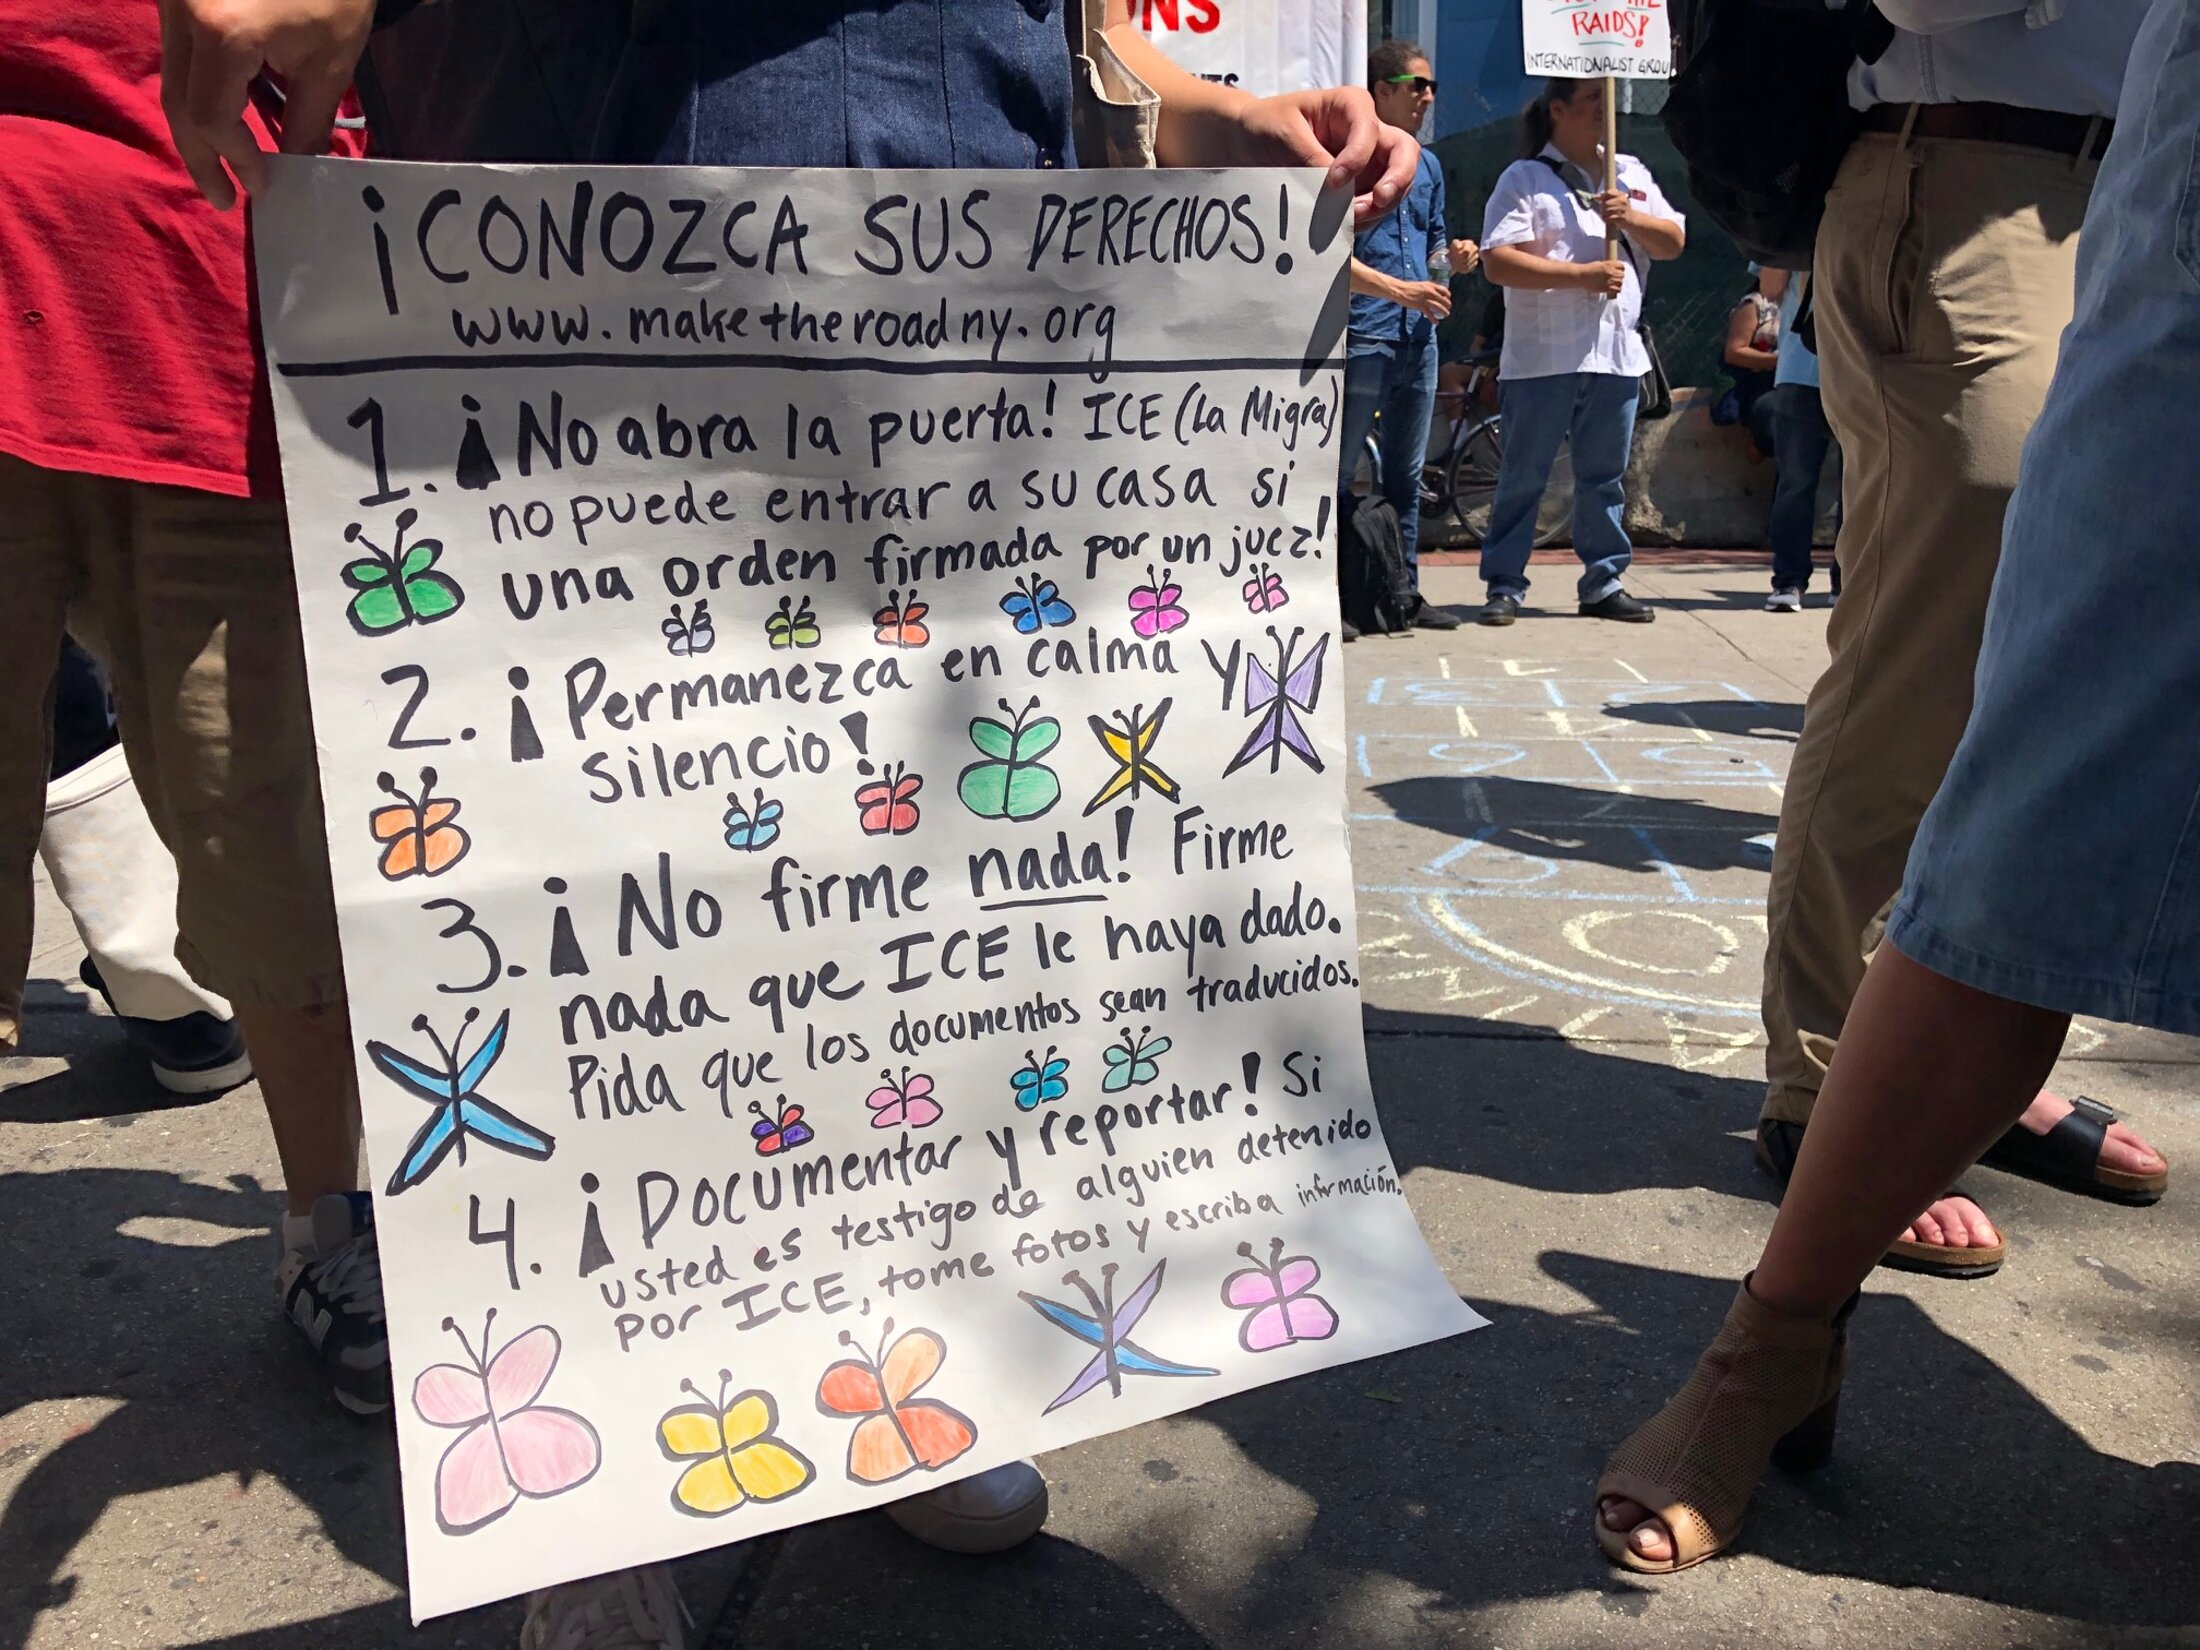 NS
RAIDS!
INTERNATIONALIST GROU
¡CONOZCA SUS DERECHOS!
www.maketheroadny.org
1. ¡No abra la puerta! ICE (La Migra)
no puede entrar a su casa si
una orden firmada por un juez!
2. ¡Permanezca en calma y
silencio!
3. ¡No firme nada! Firme
nada que ICE le haya dado.
Pida que los documentos sean traducidos.
4. ¡Documentar y reportar! Si
usted es testigo de alguien detenido
por ICE, tome fotos y escriba infrmación.